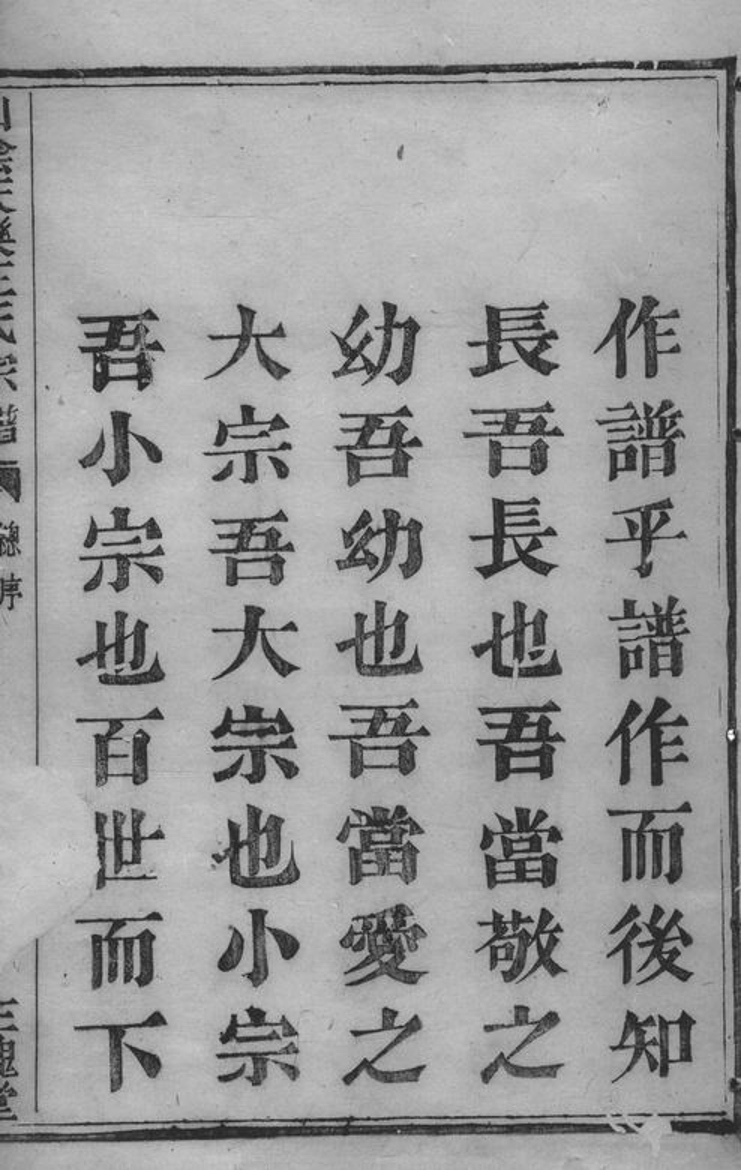 作譜乎譜作而後知
長吾長也吾當敬之
幼吾幼也吾當愛之
大宗吾大宗也小宗
吾小宗也百世而下
山陰天樂王氏宗譜
總序
三槐堂